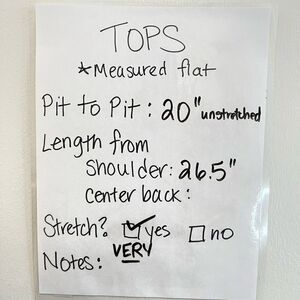 TOPS
*Measured flat
Pit to Pit: 20" unstretched
Length from
shoulder: 26.5"
center back:
Stretch? ☑ yes ☐ no
VERY
Notes: